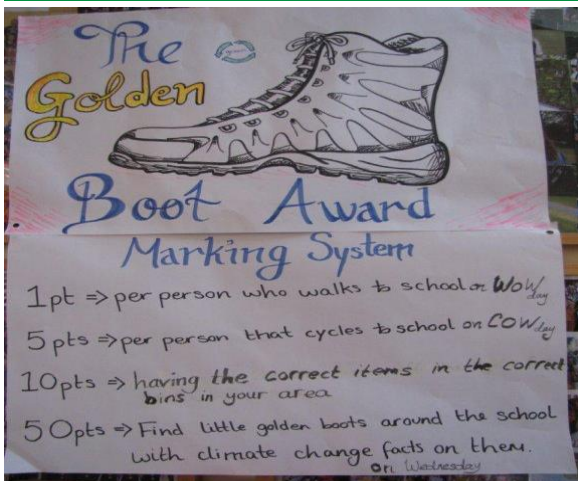 The
Golden
Boot Award
Marking System
1pt => per person who walks to school on WoW day
5 pts => per person that cycles to school on COW day
10pts => having the correct items in the correct
bins in your area
50pts => Find little golden boots around the school
with climate change facts on them.
on Wednesday